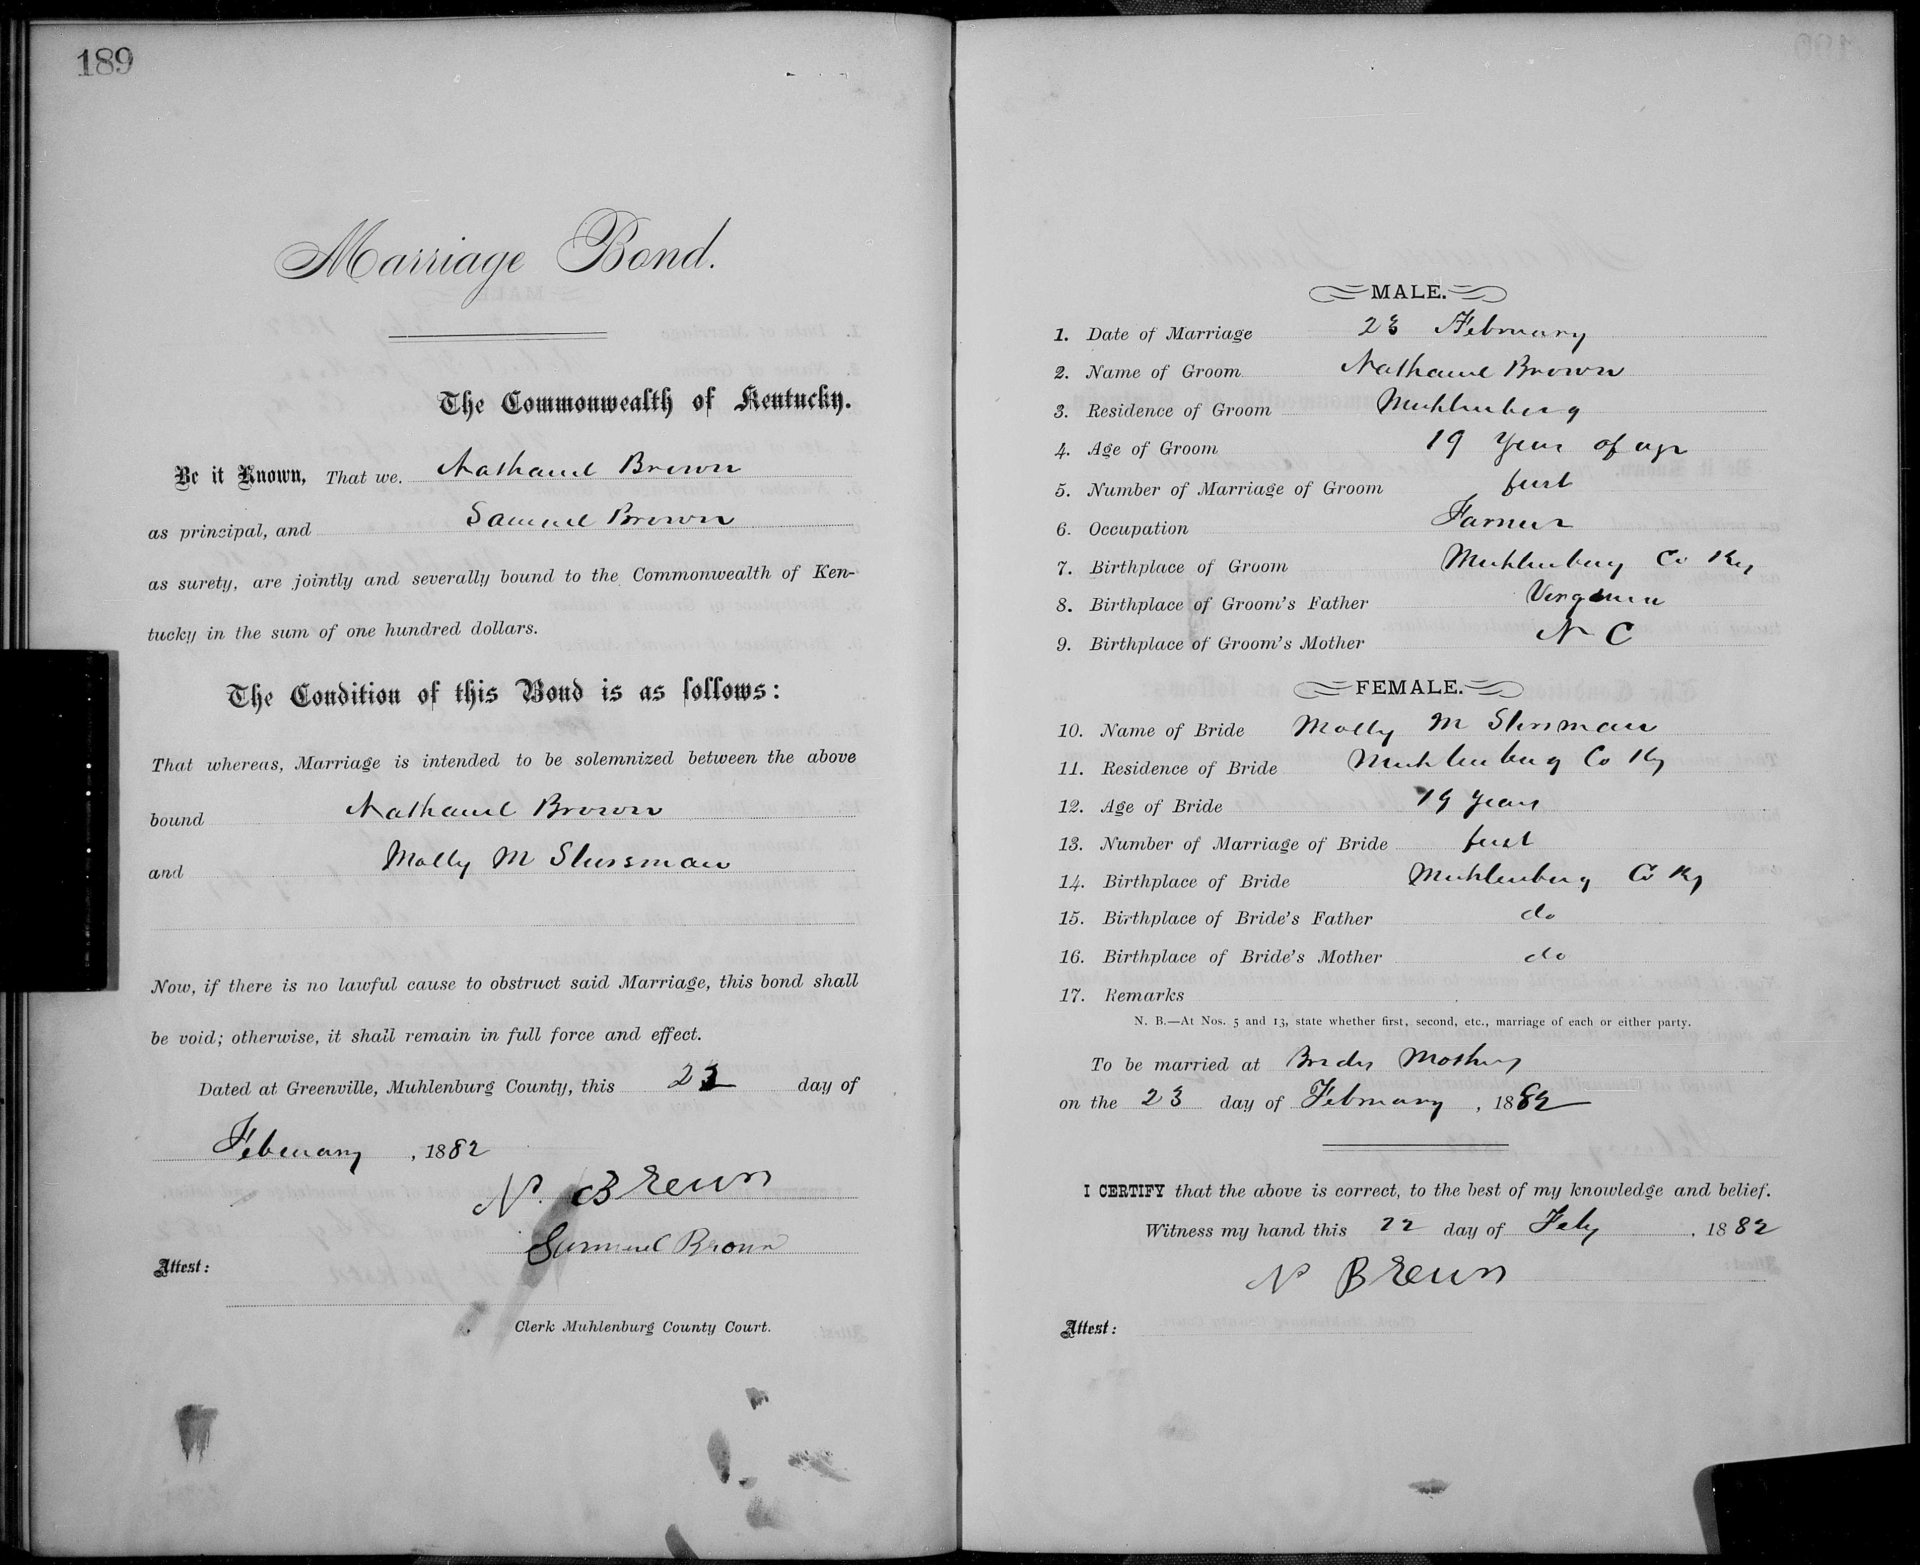 189
Marriage Bond.
The Commonwealth of Kentucky.
Be it Known, That we Nathaniel Brown
as principal, and Samuel Brown
as surety, are jointly and severally bound to the Commonwealth of Ken-
tucky in the sum of one hundred dollars.
The Condition of this Bond is as follows:
That whereas, Marriage is intended to be solemnized between the above
bound Nathaniel Brown
and Molly M Slussman
Now, if there is no lawful cause to obstruct said Marriage, this bond shall
be void; otherwise, it shall remain in full force and effect.
Dated at Greenville, Muhlenburg County, this day of
February, 1882
N. Brown
Samuel Brown
Attest:
Clerk Muhlenburg County Court.
MALE.
1. Date of Marriage 23 February
2. Name of Groom Nathaniel Brown
3. Residence of Groom Muhlenberg
4. Age of Groom 19 Years of age
5. Number of Marriage of Groom first
6. Occupation Farmer
7. Birthplace of Groom Muhlenburg Co Ky
8. Birthplace of Groom's Father Verginia
9. Birthplace of Groom's Mother N C
FEMALE.
10. Name of Bride Molly M Slusman
11. Residence of Bride Muhlenburg Co Ky
12. Age of Bride 19 years
13. Number of Marriage of Bride first
14. Birthplace of Bride Muhlenburg Co Ky
15. Birthplace of Bride's Father do
16. Birthplace of Bride's Mother do
17. Remarks
N. B.—At Nos. 5 and 13, state whether first, second, etc., marriage of each or either party.
To be married at Brides Mothers
on the 23 day of February, 1882
I CERTIFY that the above is correct, to the best of my knowledge and belief.
Witness my hand this 22 day of Feby, 1882
N Brown
Attest: